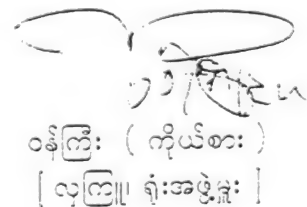 ဝန်ကြီး ( ကိုယ်စား )
[ လှကြူ၊ ရုံးအဖွဲ့မှူး ]